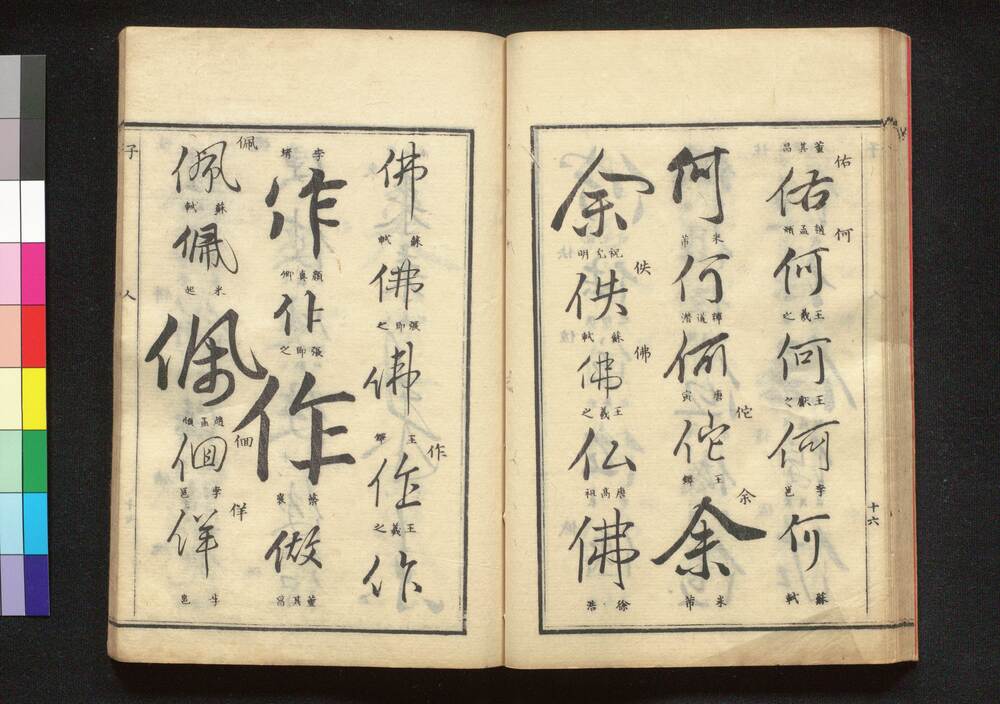 十六
佑 董其昌 佑 趙孟頫 何 何 王羲之 何 王獻之 何 李邕 何 蘇軾
何 米芾 何 道潛 何 唐寅 佗 佗 王鐸 余 余 米芾
余 祝允明 佚 佚 蘇軾 佛 佛 王羲之 仏 唐高祖 佛 徐浩
佛 蘇軾 佛 張即之 佛 王鐸 作 作 王羲之 作
李靖 作 顏真卿 作 張即之 作 蔡襄 做 董其昌
佩 佩 蘇軾 佩 米 佩 趙孟頫 佪 佪 李邕 佯 佯 邕
子 人